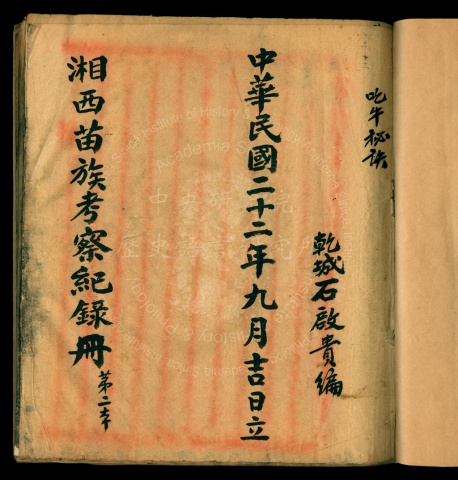 吃牛秘訣
乾城石啟貴編
中華民國二十二年九月吉日立
湘西苗族考察紀錄冊
第二本
中央研究院
歷史語言研究所
Institute of History & Philology, Academia Sinica